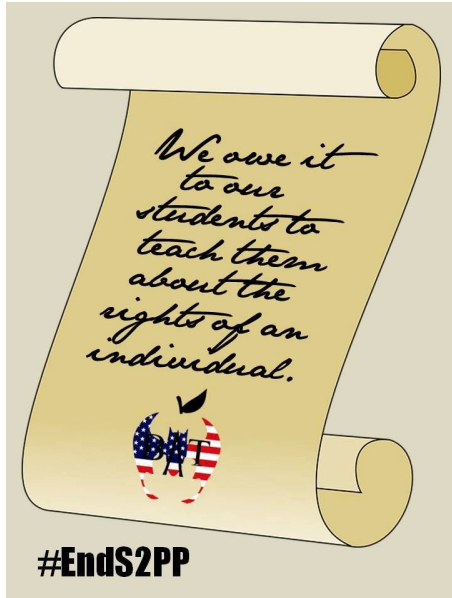 We owe it
to our
students to
teach them
about the
rights of an
individual.
BAT
#EndS2PP